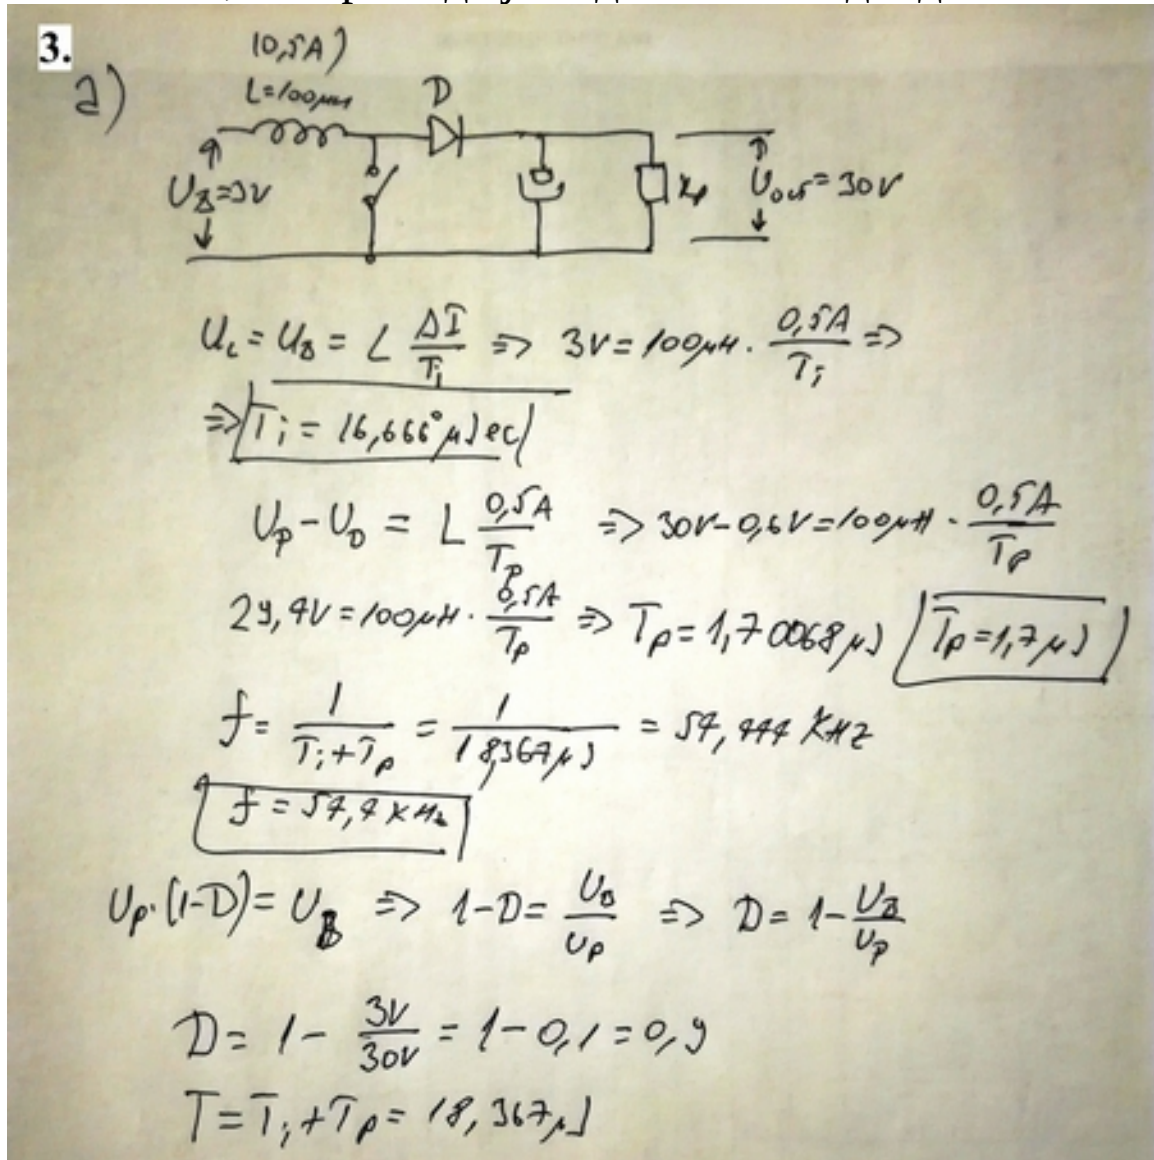 3.
a)
(0,5A)
L=100μH
D
U_B=3V
R_p
U_out=30V
U_L = U_B = L ΔI/T_i ⇒ 3V = 100μH · 0,5A/T_i ⇒
⇒ T_i = 16,666° μsec
U_p - U_D = L 0,5A/T_p ⇒ 30V-0,6V=100μH · 0,5A/T_p
29,4V=100μH · 0,5A/T_p ⇒ T_p=1,70068μs T_p=1,7μs
f= 1/(T_i+T_p) = 1/(18,367μs) = 54,444 KHz
f = 54,4 KHz
U_p·(1-D)= U_B ⇒ 1-D= U_B/U_p ⇒ D= 1- U_B/U_p
D= 1- 3V/30V = 1-0,1=0,9
T=T_i+T_p= 18,367μs